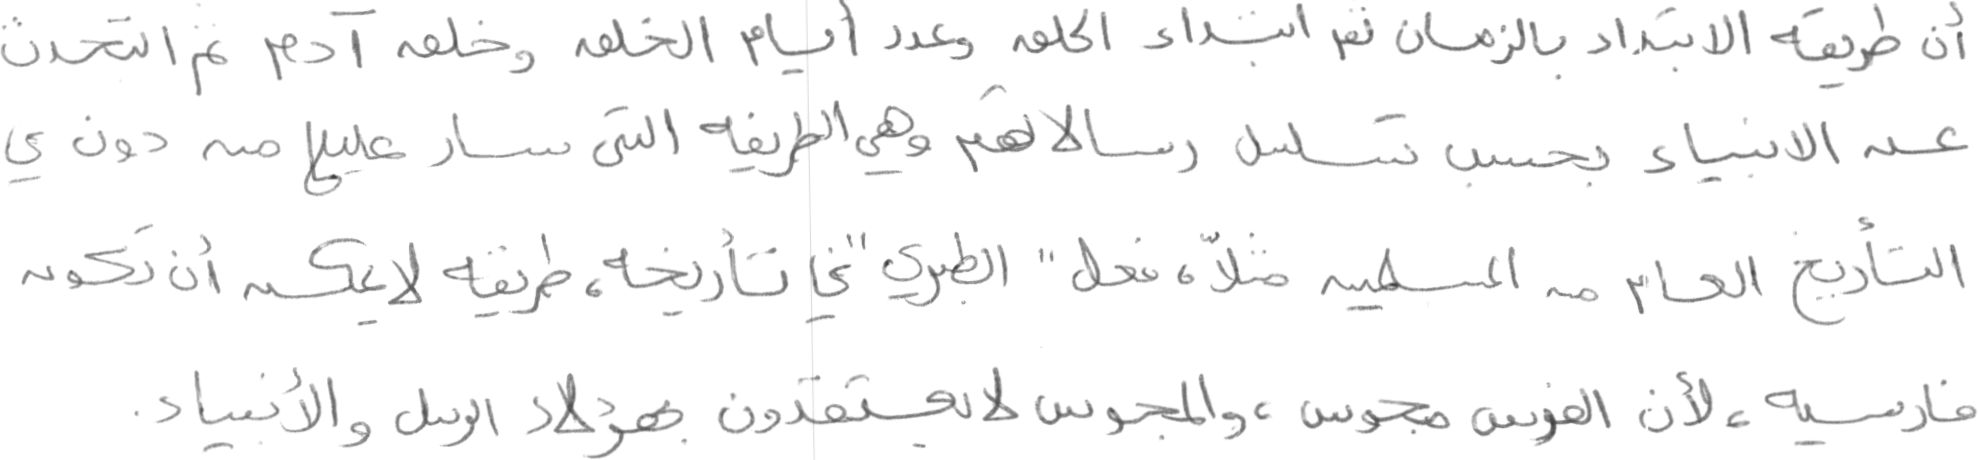 أن طريقة الابتداء بالزمان ثم ابتداء الخلق وعدد أيام الخلق وخلق آدم ثم التحدث
عن الانبياء بحسب تسلسل رسالاتهم وهي الطريقه التي سار عليها من دون في
التأريخ العام من المسلمين مثلاً، فعل "الطبري" في تأريخه، طريقه لا يمكن أن تكون
فارسيه، لأن الفرس مجوس، والمجوس لا يعتقدون بهؤلاء الرسل والأنبياء.